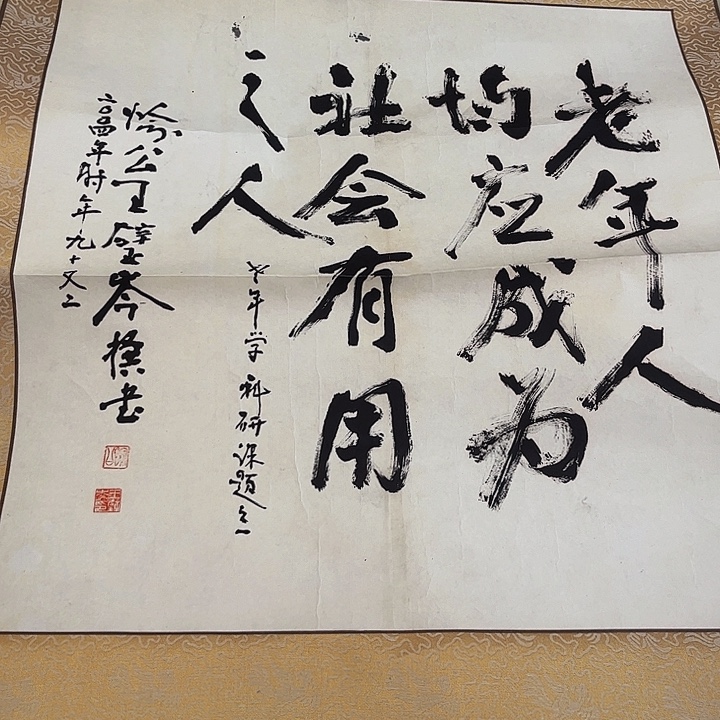 老年人
均应成为
社会有用
之人
老年学科研课题之一
公王壁岑撰书
二〇〇四年时年九十又二